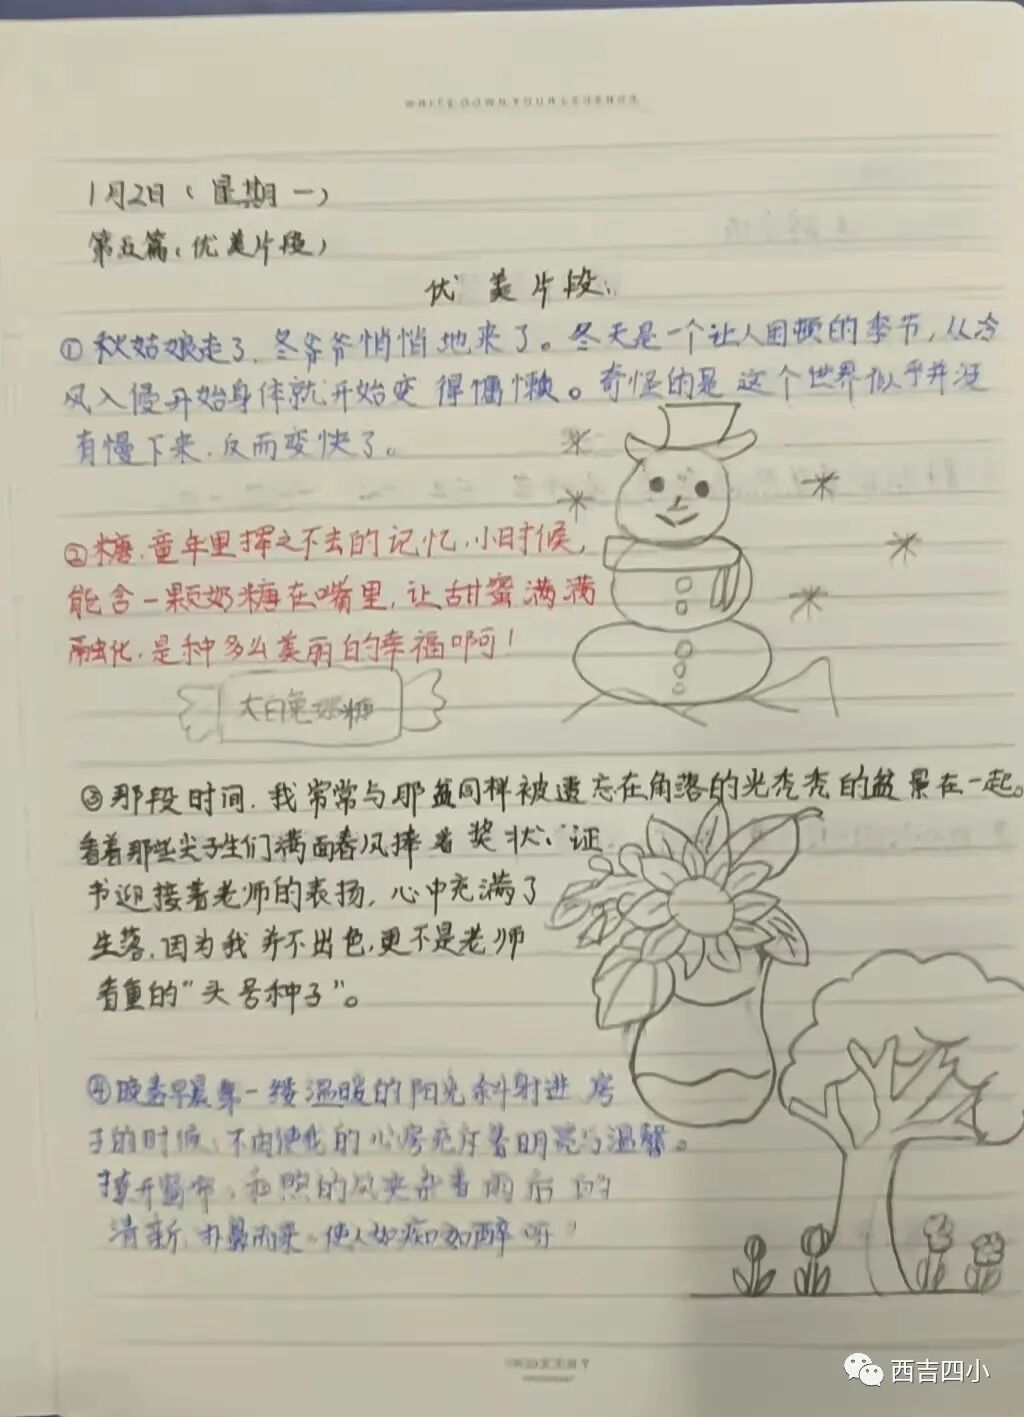 WRITE DOWN YOUR LEGENDS
1月2日（星期一）
第五篇（优美片段）
优美片段：
①秋姑娘走了，冬爷爷悄悄地来了。冬天是一个让人困顿的季节，从冷
风入侵开始身体就开始变得慵懒。奇怪的是这个世界似乎并没
有慢下来，反而变快了。
②糖，童年里挥之不去的记忆，小时候，
能含一颗奶糖在嘴里，让甜蜜满满
融化，是种多么美丽的幸福啊！
大白兔奶糖
③那段时间，我常常与那盆同样被遗忘在角落的光秃秃的盆景在一起。
看着那些尖子生们满面春风捧着奖状、证
书迎接着老师的表扬，心中充满了
失落，因为我并不出色，更不是老师
看重的“头号种子”。
④晚春早晨第一缕温暖的阳光斜射进房
子的时候，不由使我的心房充斥着明亮与温馨。
推开窗帘，和煦的风夹杂着雨后的
清新，扑鼻而来，使人如痴如醉呀！
西吉四小